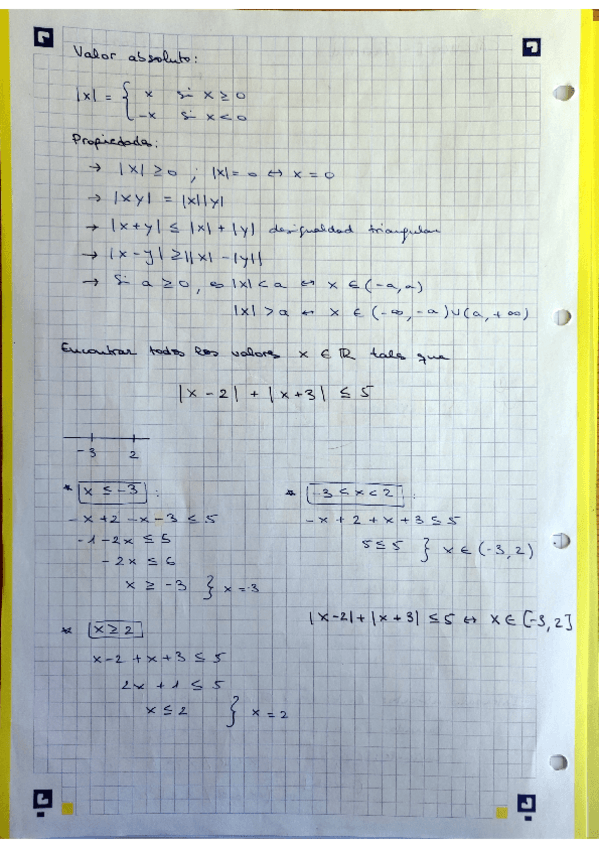 Valor absoluto:
|x| = { x si x ≥ 0
-x si x < 0
Propiedades:
→ |x| ≥ 0 ; |x| = 0 ↔ x = 0
→ |xy| = |x||y|
→ |x+y| ≤ |x| + |y| desigualdad triangular
→ |x-y| ≥ ||x| - |y||
→ Si a ≥ 0, |x| < a ↔ x ∈ (-a, a)
|x| > a ↔ x ∈ (-∞, -a) ∪ (a, +∞)
Encontrar todos los valores x ∈ ℝ tales que
|x-2| + |x+3| ≤ 5
-3 2
* x ≤ -3 :
-x+2-x-3 ≤ 5
-1-2x ≤ 5
-2x ≤ 6
x ≥ -3 } x = -3
* -3 < x < 2 :
-x+2+x+3 ≤ 5
5 ≤ 5 } x ∈ (-3, 2)
* x ≥ 2
x-2+x+3 ≤ 5
2x+1 ≤ 5
x ≤ 2 } x = 2
|x-2| + |x+3| ≤ 5 ↔ x ∈ [-3, 2]